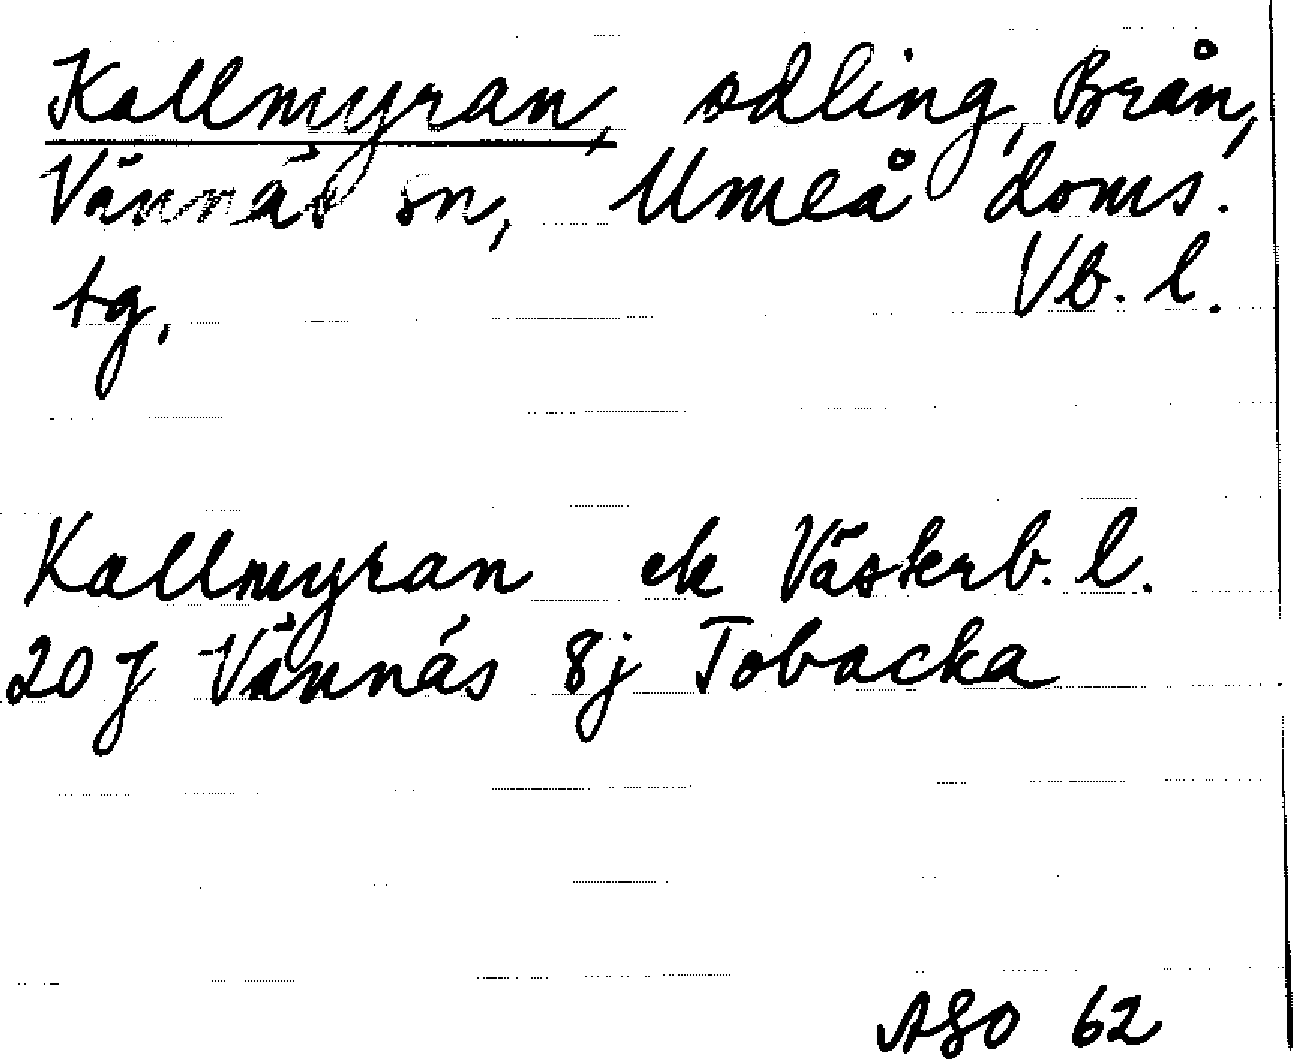 Kallmyran, odling, Brån,
Vännäs sn, Umeå doms.
tg, Vb. l.
Kallmyran ek Västerb. l.
20 J Vännäs 8j Tobacka
ASO 62